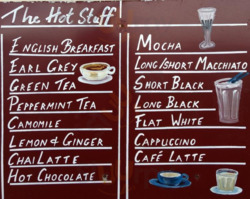 The Hot Stuff
English Breakfast
Earl Grey
Green Tea
Peppermint Tea
Camomile
Lemon & Ginger
Chai Latte
Hot Chocolate
Mocha
Long/Short Macchiato
Short Black
Long Black
Flat White
Cappuccino
Café Latte